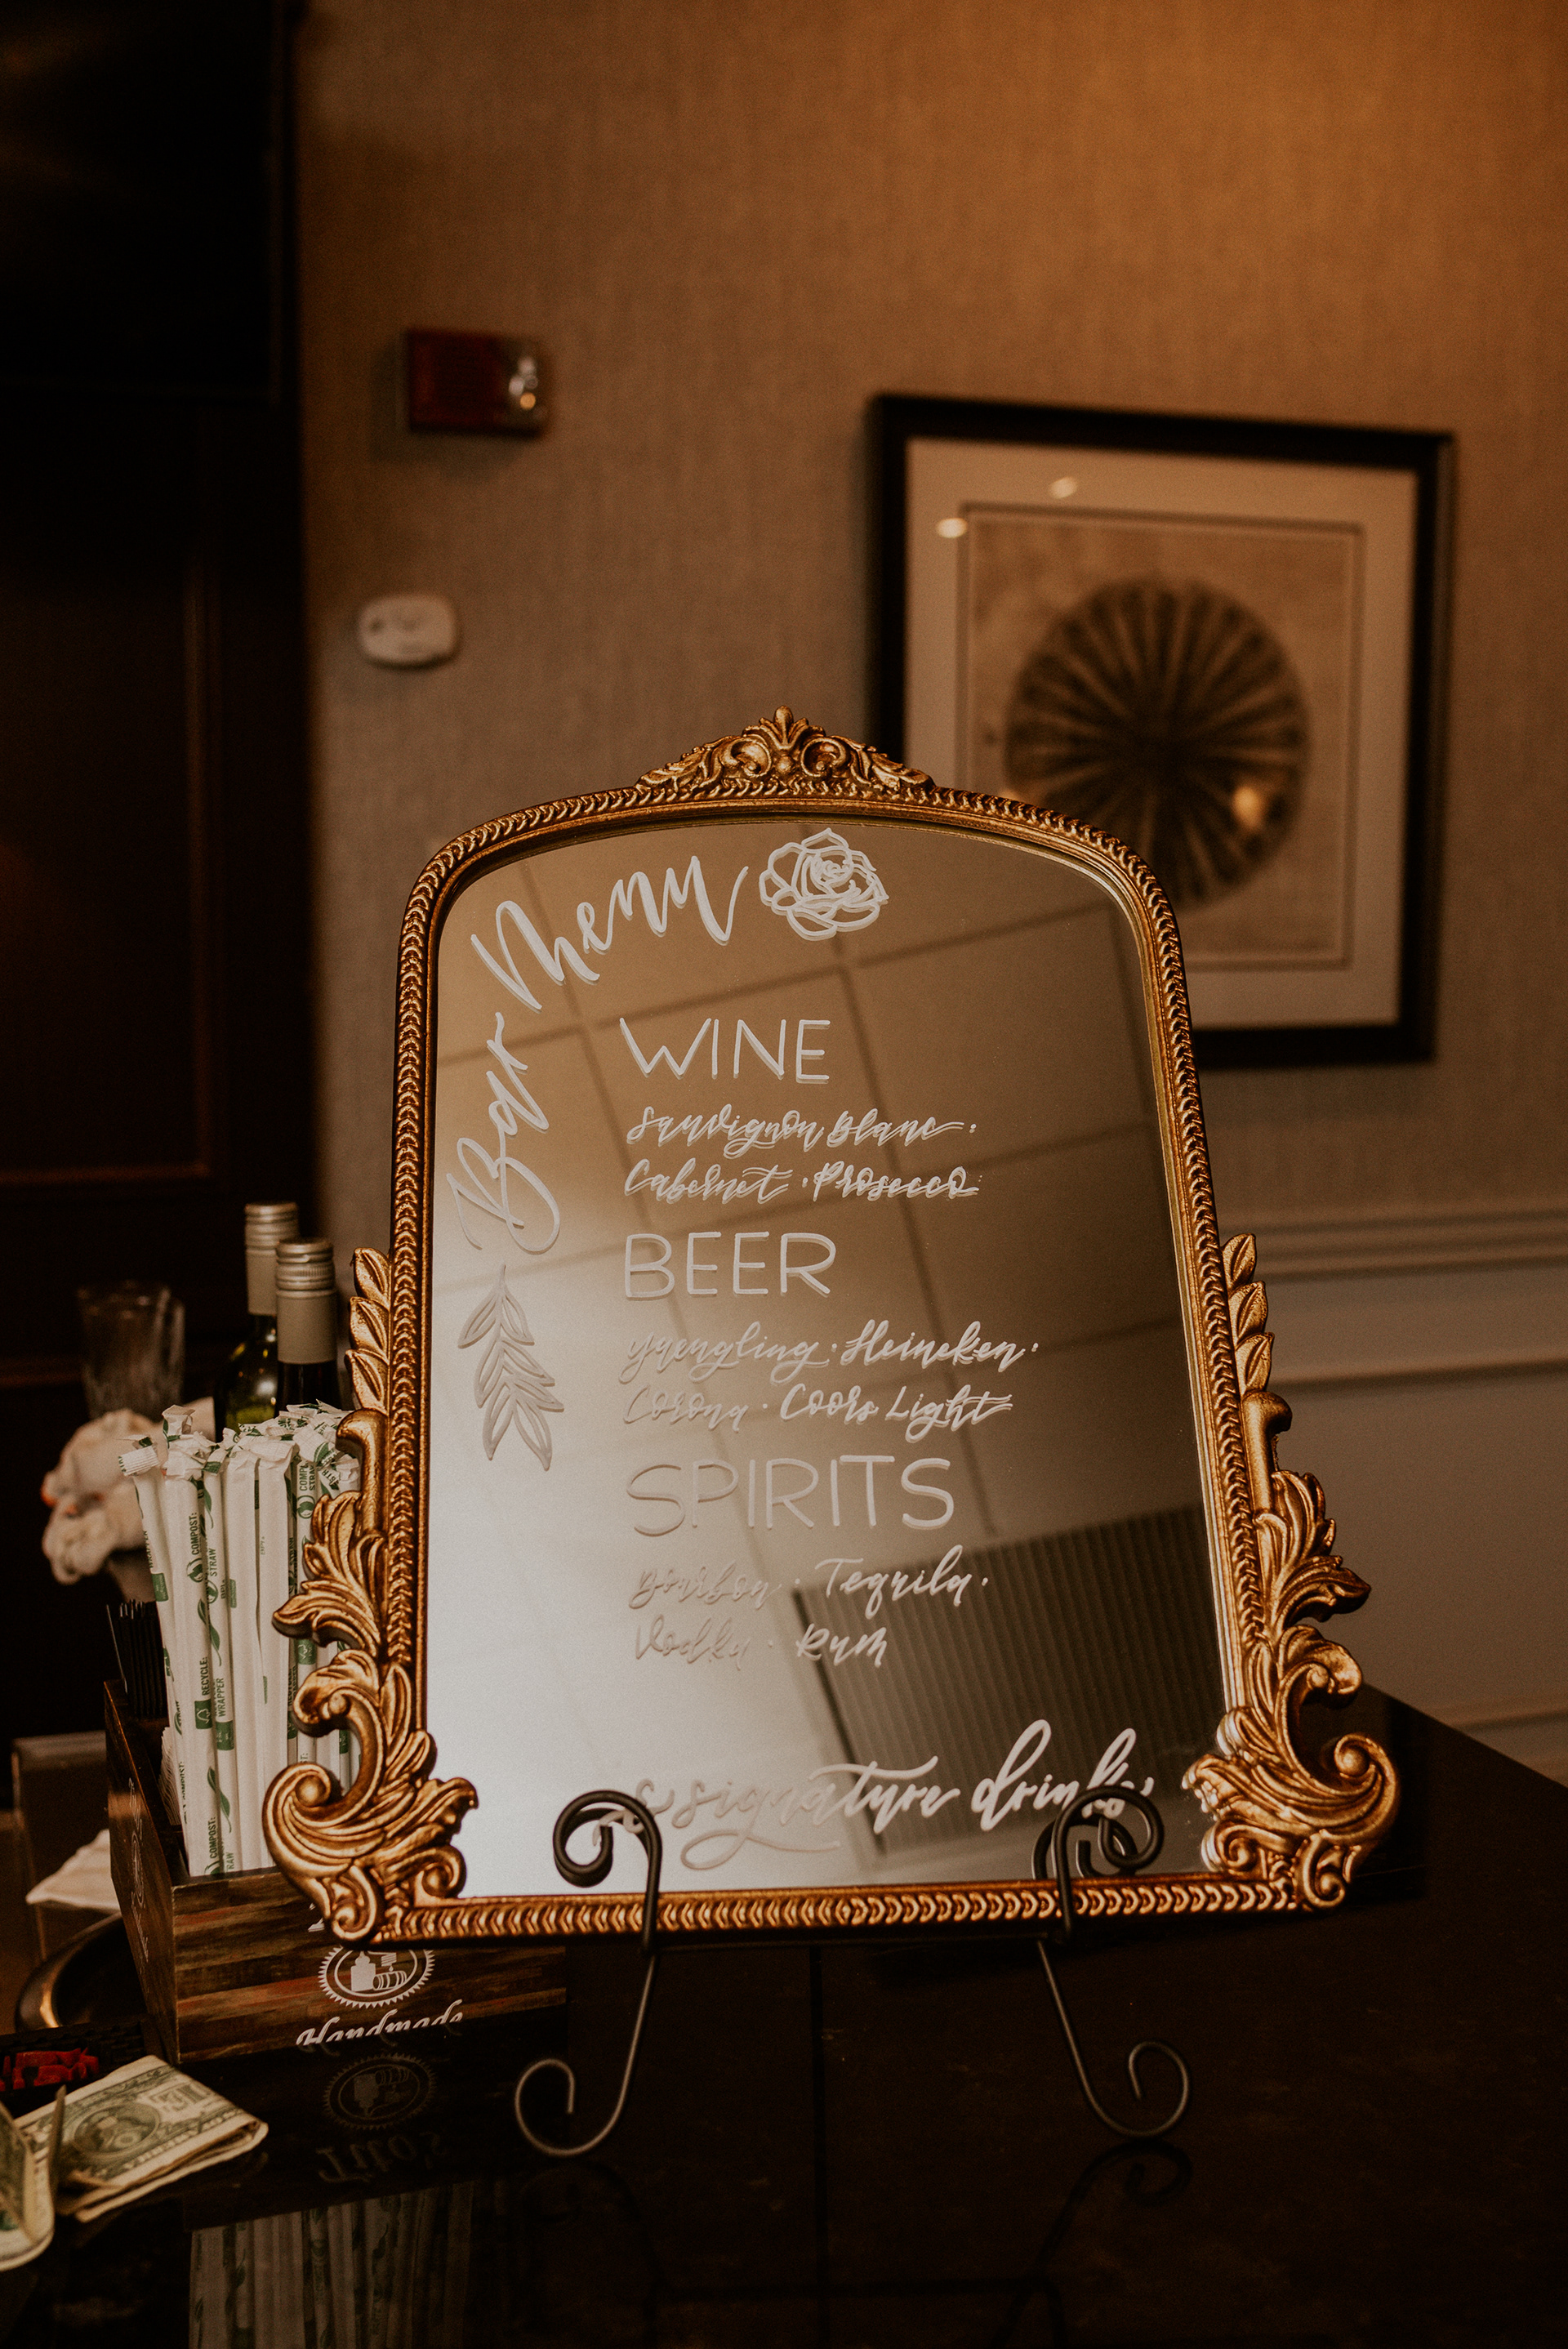 Bar Menu
WINE
Sauvignon Blanc ·
Cabernet · Prosecco
BEER
Yuengling · Heineken ·
Corona · Coors Light
SPIRITS
Bourbon · Tequila ·
Vodka · Rum
& signature drinks
COMPOST:
STRAW
RECYCLE:
WRAPPER
COMPOST:
STRAW
Handmade
Tito's